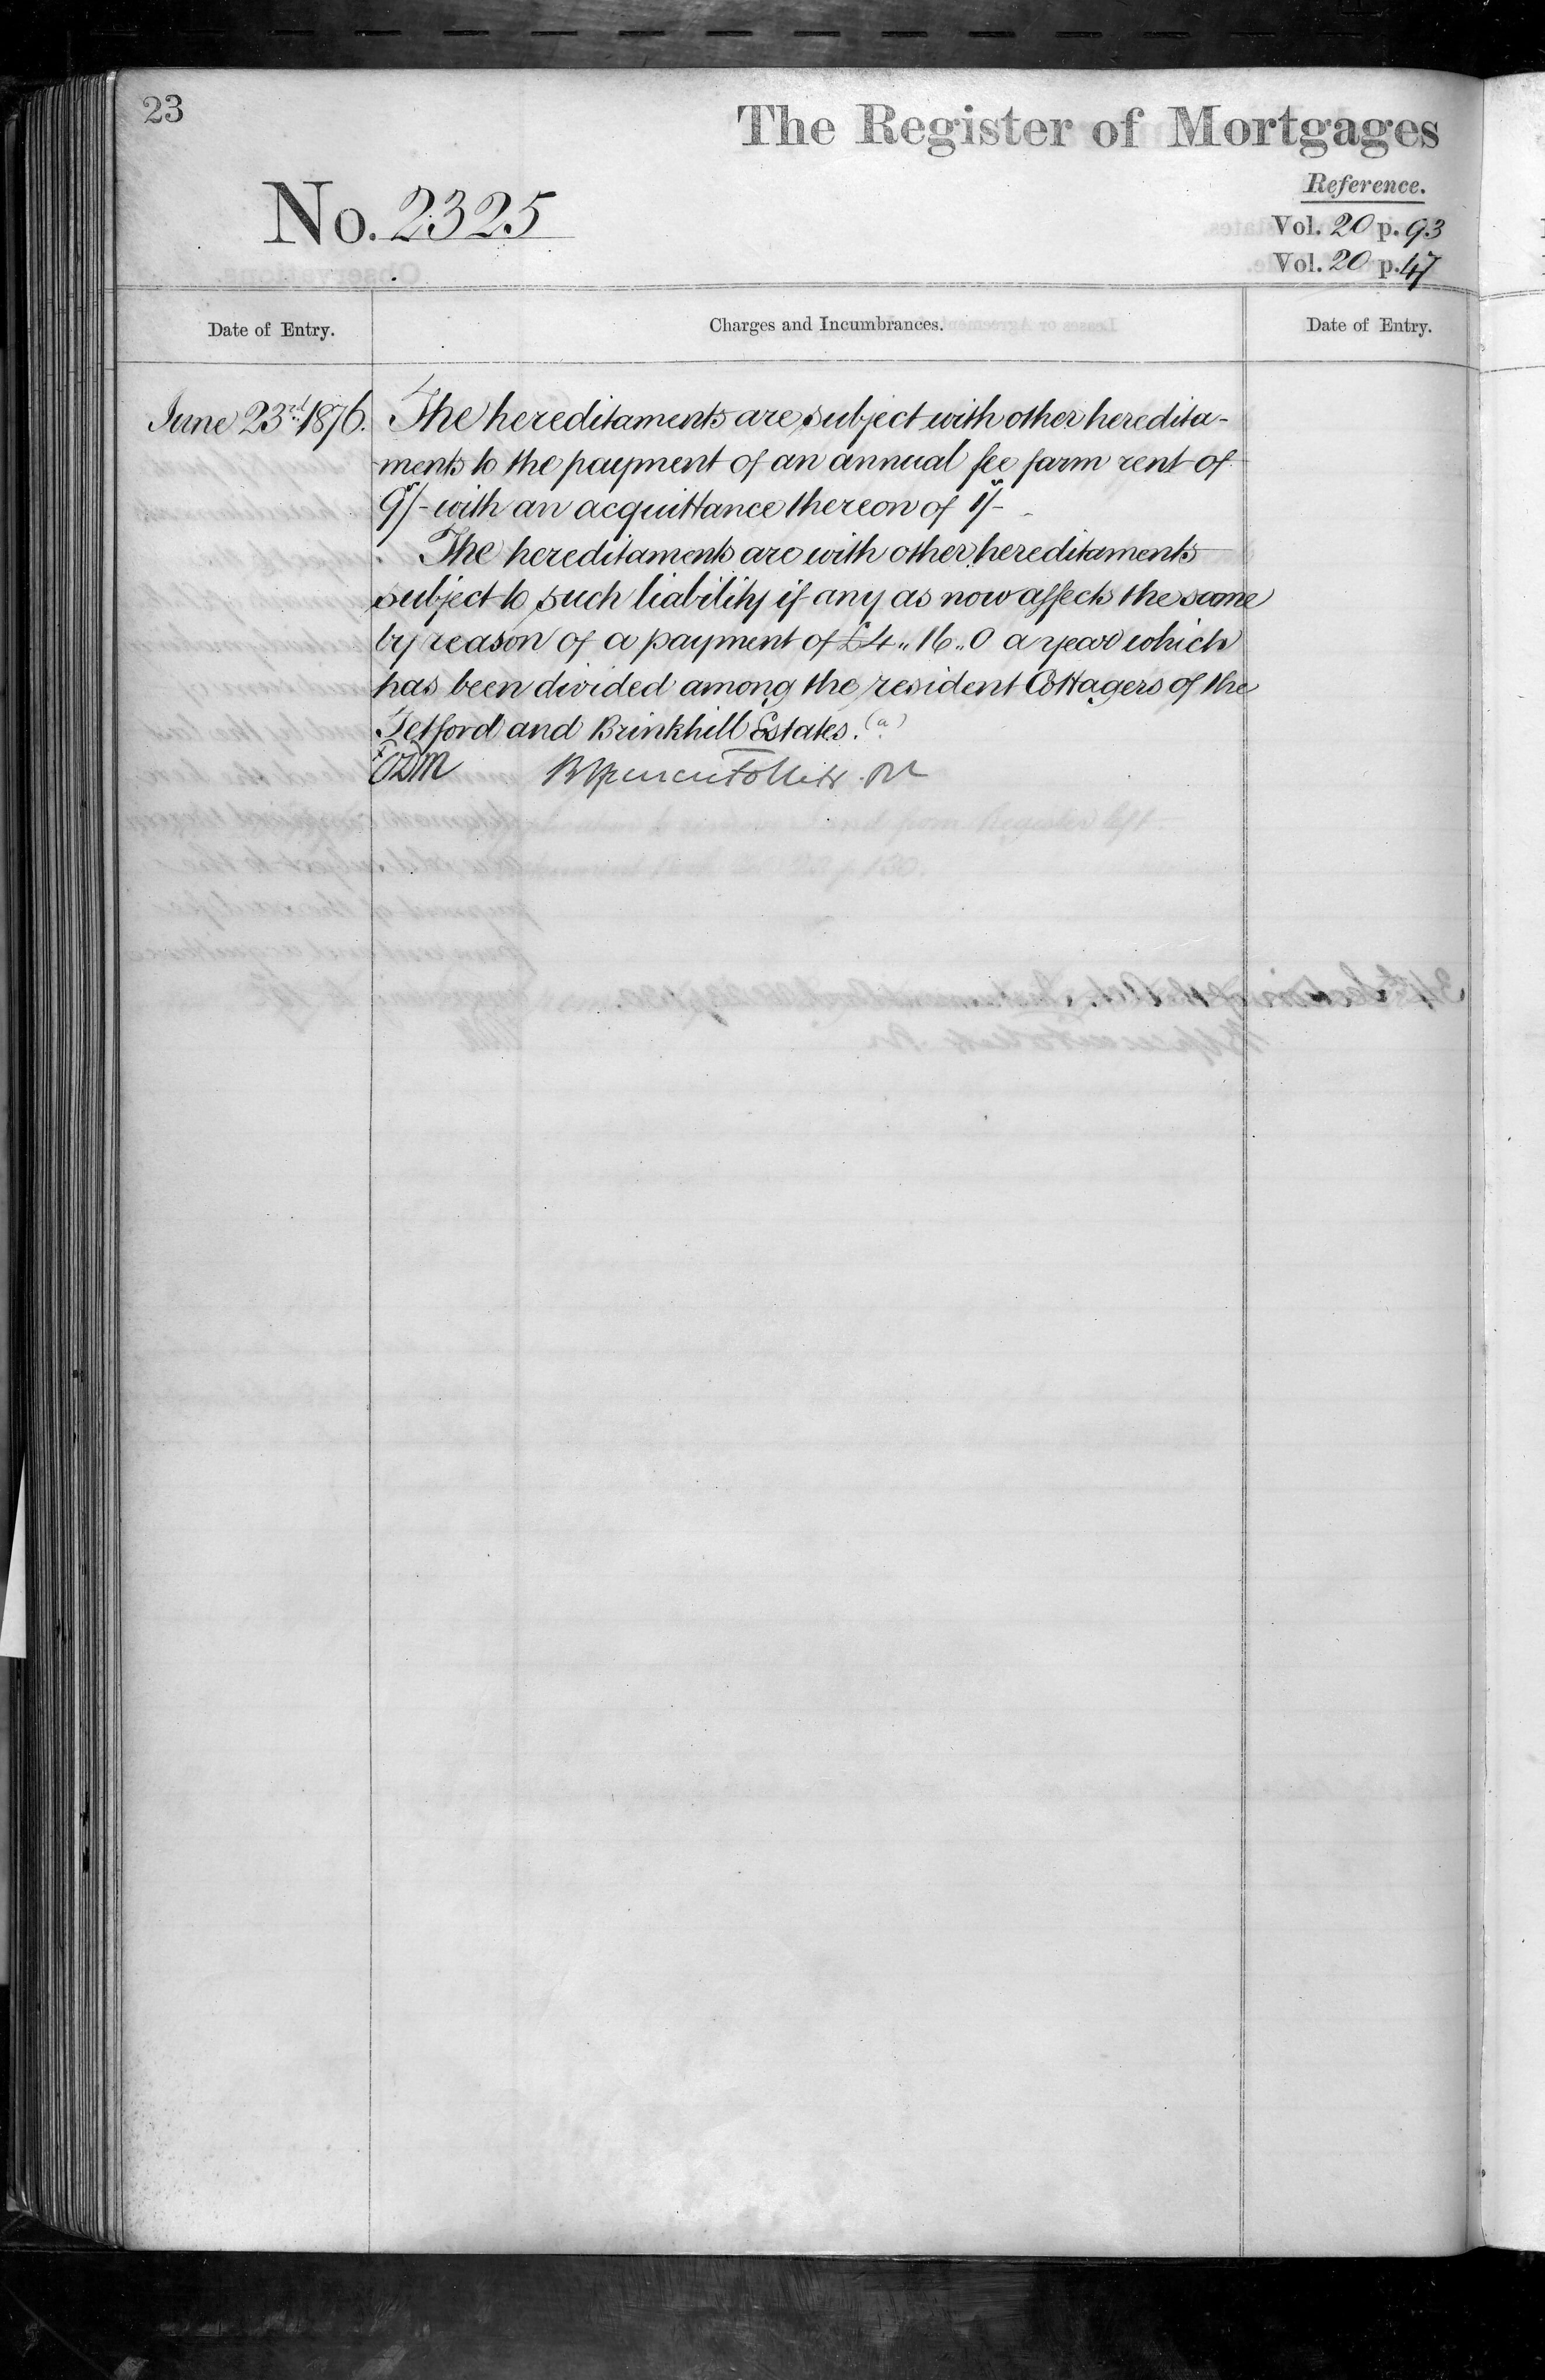 23
The Register of Mortgages
Reference.
No. 2325
Vol. 20 p. 93
Vol. 20 p. 47
Date of Entry.
Charges and Incumbrances.
Date of Entry.
June 23rd 1876. The hereditaments are subject with other heredita-
ments to the payment of an annual fee farm rent of
9s/- with an acquittance thereon of 1s/-
The hereditaments are with other hereditaments
subject to such liability if any as now affects the same
by reason of a payment of £4„16„0 a year which
has been divided among the resident Cottagers of the
Tetford and Brinkhill Estates. (a)